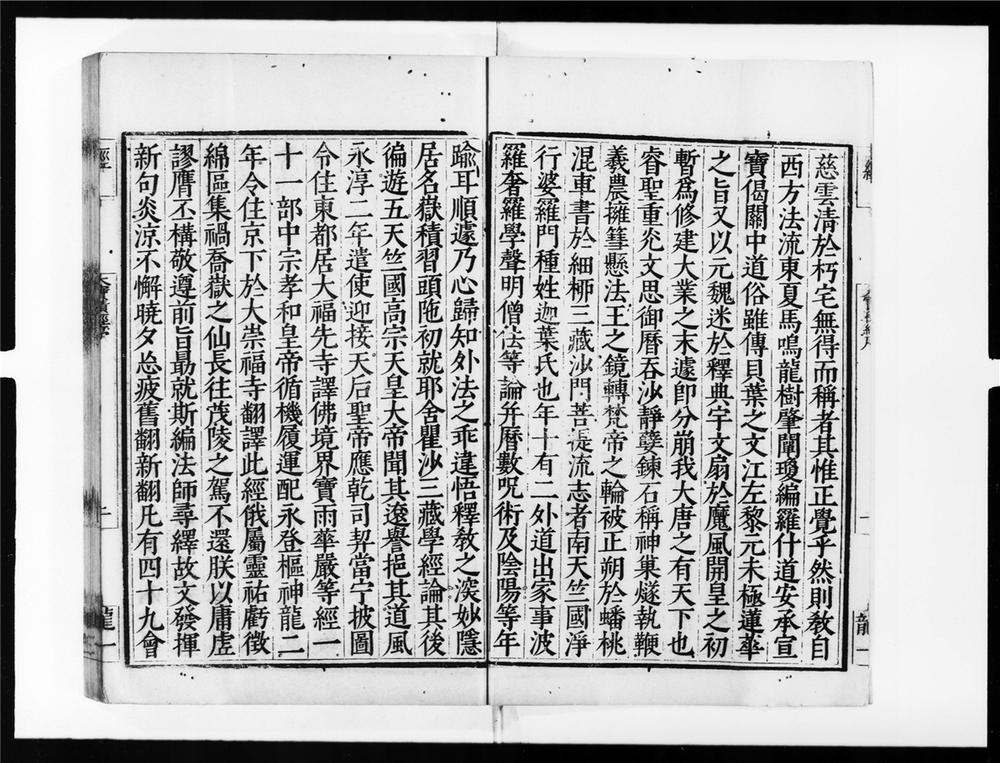 慈雲清於朽宅無得而稱者其惟正覺乎然則敎自
西方法流東夏馬鳴龍樹肇闡瓊編羅什道安承宣
寶偈關中道俗雖傳貝葉之文江左黎元未極蓮華
之旨又以元魏迷於釋典宇文扇於魔風開皇之初
暫爲修建大業之末遽卽分崩我大唐之有天下也
睿聖重光文思御曆吞沙靜孽鍊石稱神巢燧執鞭
羲農擁篲懸法王之鏡轉梵帝之輪被正朔於蟠桃
混車書於細柳三藏沙門菩提流志者南天竺國淨
行婆羅門種姓迦葉氏也年十有二外道出家事波
羅奢羅學聲明僧佉等論并曆數呪術及陰陽等年
踰耳順遽乃心歸知外法之乖違悟釋敎之深妙隱
居名嶽積習頭陁初就耶舍瞿沙三藏學經論其後
徧遊五天竺國高宗天皇大帝聞其遠譽挹其道風
永淳二年遣使迎接天后聖帝應乾司契當宁披圖
令住東都居大福先寺譯佛境界寶雨華嚴等經一
十一部中宗孝和皇帝循機履運配永登樞神龍二
年令住京下於大崇福寺翻譯此經俄屬靈祐虧徵
綿區集禍喬嶽之仙長往茂陵之駕不還朕以庸虛
謬膺丕構敬遵前旨最就斯編法師尋繹故文發揮
新句炎涼不懈曉夕忘疲舊翻新翻凡有四十九會
經
大寶積經序
二
龍一